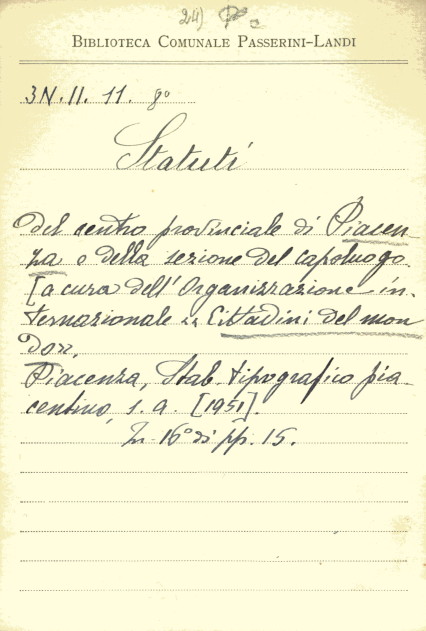 24)
BIBLIOTECA COMUNALE PASSERINI-LANDI
3N.II. 11. 8º
Statuti
del centro provinciale di Piacen-
za e della sezione del capoluogo.
[a cura dell'Organizzazione in-
ternazionale "Cittadini del mon
do".
Piacenza, Stab. tipografico pia-
centino, s. a. [1951].
In-16º di pp. 15.